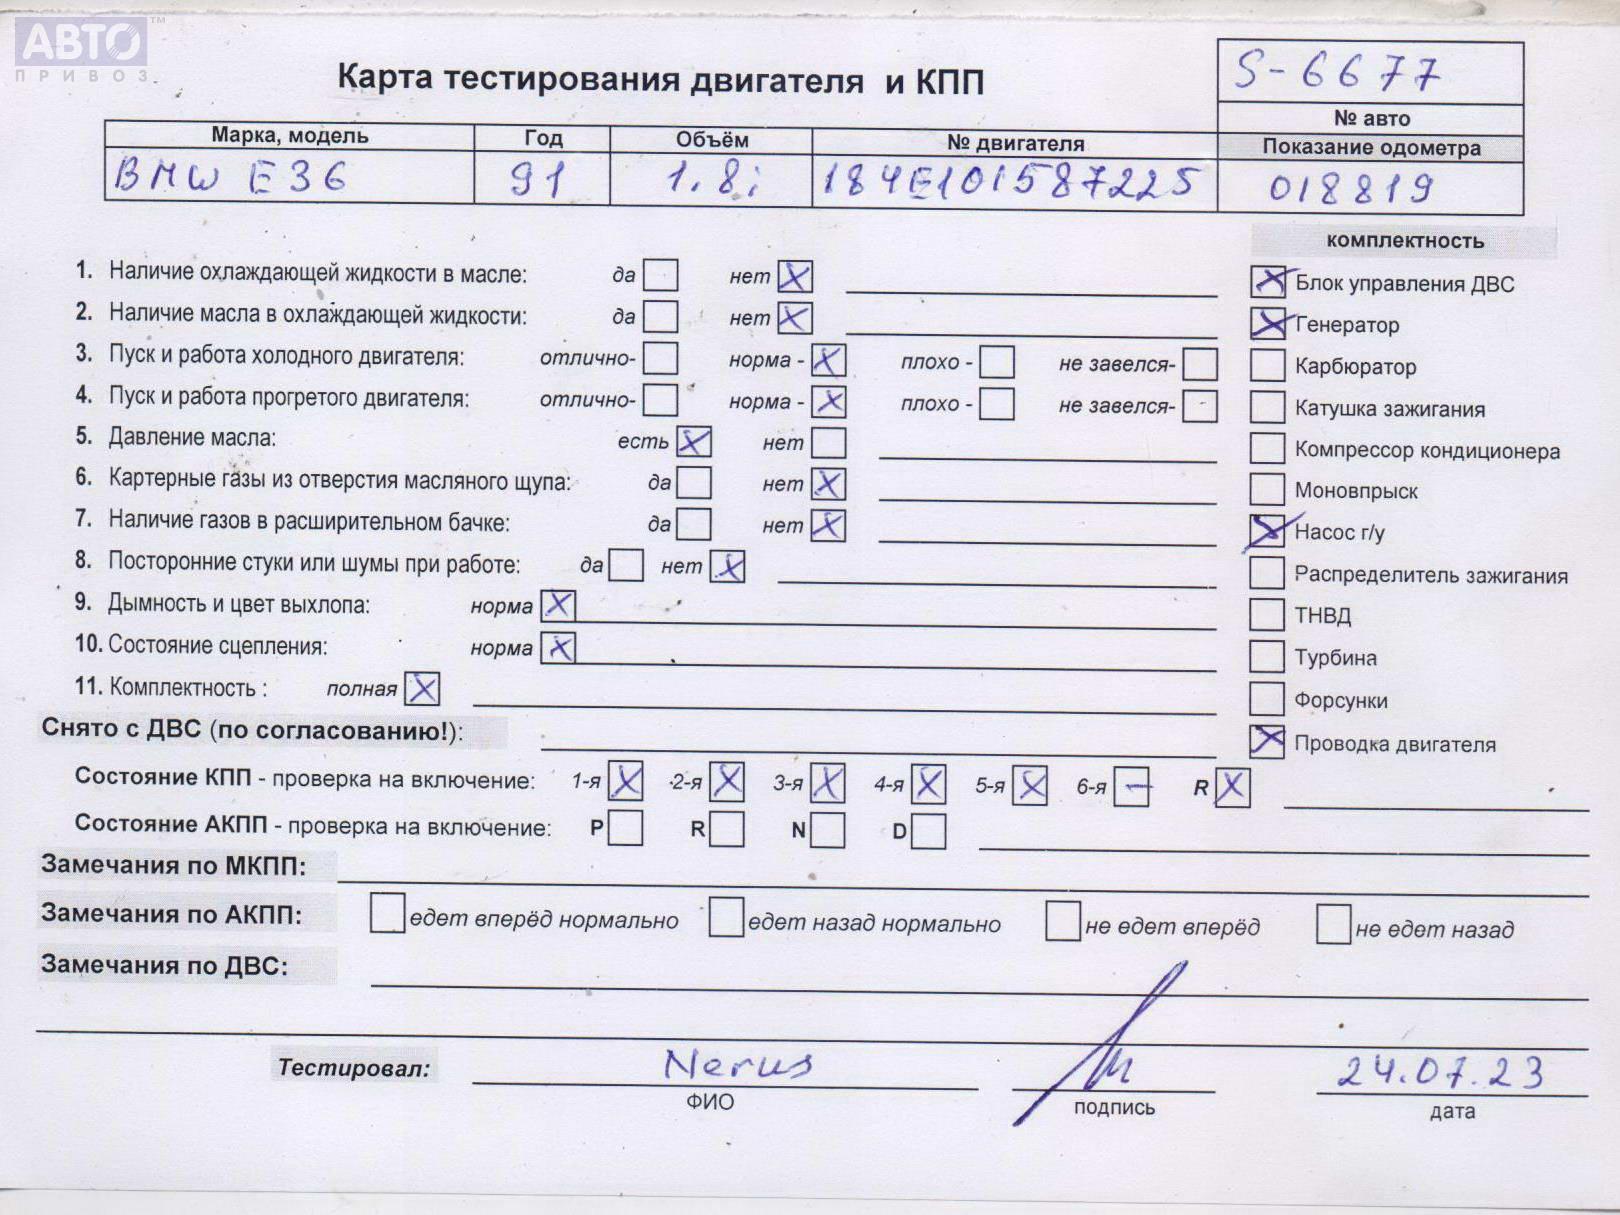 АВТО™
ПРИВОЗ
Карта тестирования двигателя и КПП
S-6677
№ авто
Марка, модель Год Объём № двигателя Показание одометра
BMW E36 91 1.8i 184E101587225 018819
комплектность
1. Наличие охлаждающей жидкости в масле: да нет X
X Блок управления ДВС
2. Наличие масла в охлаждающей жидкости: да нет X
X Генератор
3. Пуск и работа холодного двигателя: отлично- норма - X плохо - не завелся-
Карбюратор
4. Пуск и работа прогретого двигателя: отлично- норма - X плохо - не завелся-
Катушка зажигания
5. Давление масла: есть X нет
Компрессор кондиционера
6. Картерные газы из отверстия масляного щупа: да нет X
Моновпрыск
7. Наличие газов в расширительном бачке: да нет X
X Насос г/у
8. Посторонние стуки или шумы при работе: да нет X
Распределитель зажигания
9. Дымность и цвет выхлопа: норма X
ТНВД
10. Состояние сцепления: норма X
Турбина
11. Комплектность : полная X
Форсунки
Снято с ДВС (по согласованию!):
X Проводка двигателя
Состояние КПП - проверка на включение: 1-я X 2-я X 3-я X 4-я X 5-я X 6-я — R X
Состояние АКПП - проверка на включение: P R N D
Замечания по МКПП:
Замечания по АКПП: едет вперёд нормально едет назад нормально не едет вперёд не едет назад
Замечания по ДВС:
Тестировал: Nerus 24.07.23
ФИО подпись дата